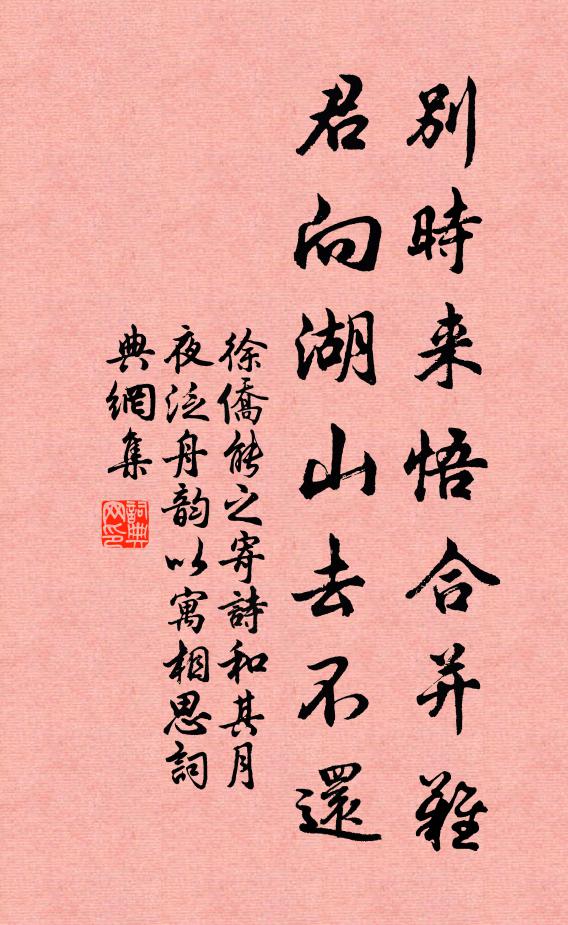 別時来悟合并難
君向湖山去不還
徐僑能之寄詩和其月
夜泛舟韵以寓相思詞
典網集
詞典
网印